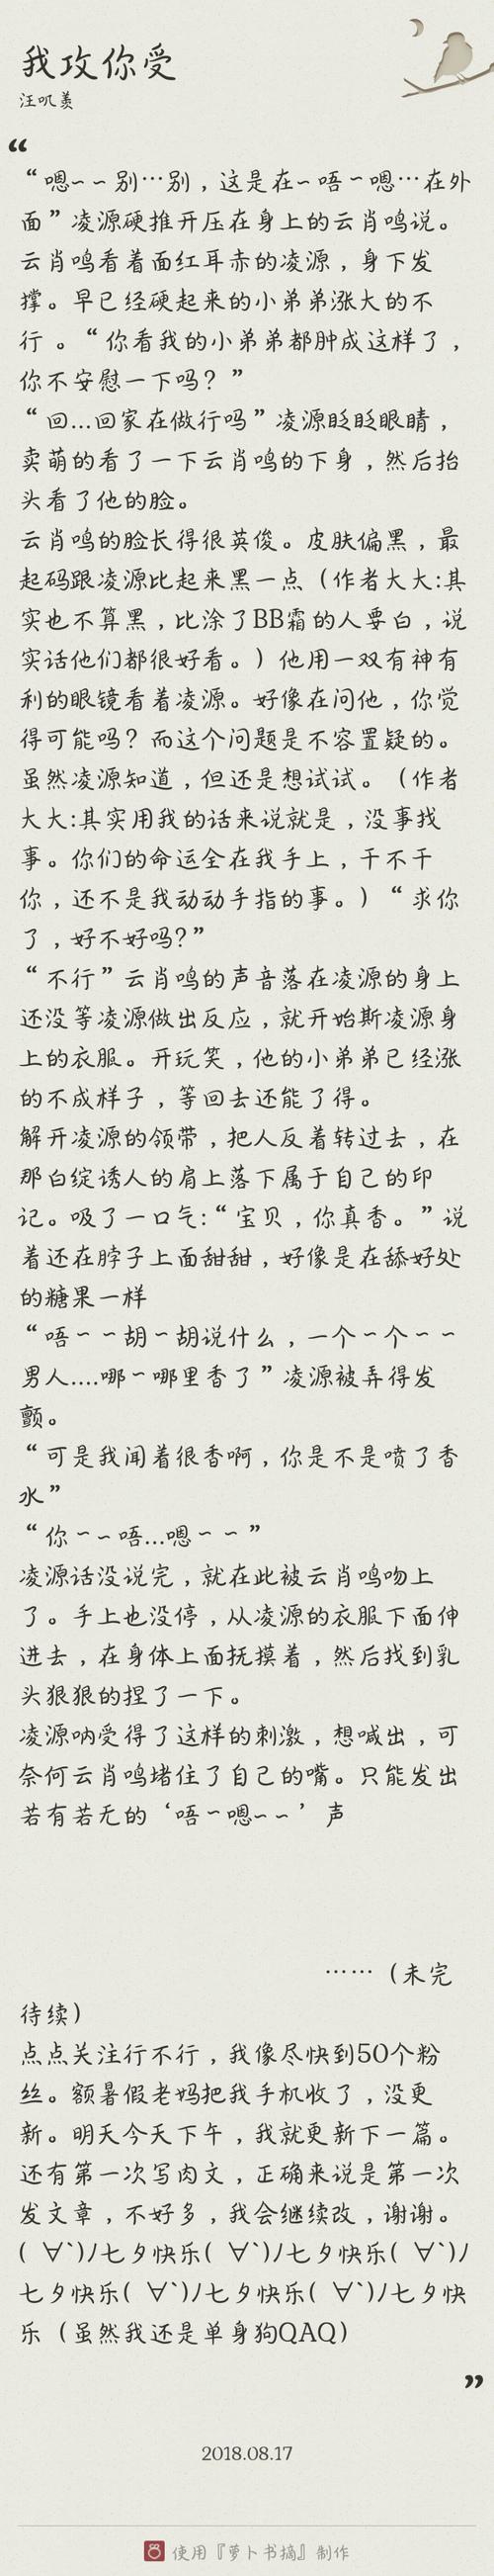 我攻你受
汪叽羡
“
“嗯~~别…别，这是在~唔~嗯…在外
面”凌源硬推开压在身上的云肖鸣说。
云肖鸣看着面红耳赤的凌源，身下发
撑。早已经硬起来的小弟弟涨大的不
行 。“你看我的小弟弟都肿成这样了，
你不安慰一下吗？”
“回...回家在做行吗”凌源眨眨眼睛，
卖萌的看了一下云肖鸣的下身，然后抬
头看了他的脸。
云肖鸣的脸长得很英俊。皮肤偏黑，最
起码跟凌源比起来黑一点（作者大大:其
实也不算黑，比涂了BB霜的人要白，说
实话他们都很好看。）他用一双有神有
利的眼镜看着凌源。好像在问他，你觉
得可能吗？而这个问题是不容置疑的。
虽然凌源知道，但还是想试试。（作者
大大:其实用我的话来说就是，没事找
事。你们的命运全在我手上，干不干
你，还不是我动动手指的事。）“求你
了，好不好吗?”
“不行”云肖鸣的声音落在凌源的身上
还没等凌源做出反应，就开始斯凌源身
上的衣服。开玩笑，他的小弟弟已经涨
的不成样子，等回去还能了得。
解开凌源的领带，把人反着转过去，在
那白绽诱人的肩上落下属于自己的印
记。吸了一口气:“宝贝，你真香。”说
着还在脖子上面甜甜，好像是在舔好处
的糖果一样
“唔~~胡~胡说什么，一个~个~~
男人....哪~哪里香了”凌源被弄得发
颤。
“可是我闻着很香啊，你是不是喷了香
水”
“你~~唔...嗯~~”
凌源话没说完，就在此被云肖鸣吻上
了。手上也没停，从凌源的衣服下面伸
进去，在身体上面抚摸着，然后找到乳
头狠狠的捏了一下。
凌源呐受得了这样的刺激，想喊出，可
奈何云肖鸣堵住了自己的嘴。只能发出
若有若无的‘唔~嗯~~’声
……（未完
待续）
点点关注行不行，我像尽快到50个粉
丝。额暑假老妈把我手机收了，没更
新。明天今天下午，我就更新下一篇。
还有第一次写肉文，正确来说是第一次
发文章，不好多，我会继续改，谢谢。
( ∀`)ﾉ七夕快乐( ∀`)ﾉ七夕快乐( ∀`)ﾉ
七夕快乐( ∀`)ﾉ七夕快乐( ∀`)ﾉ七夕快
乐（虽然我还是单身狗QAQ）
”
2018.08.17
使用『萝卜书摘』制作